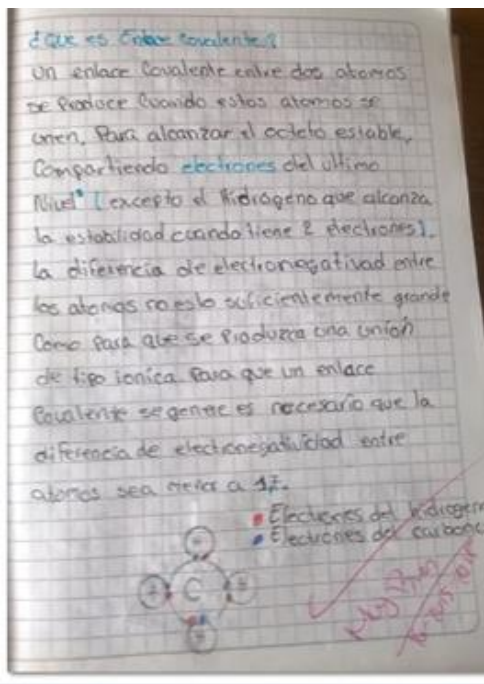 ¿Que es Enlace Covalente?
Un enlace Covalente entre dos atomos
se Produce Cuando estos atomos se
unen, Para alcanzar el octeto estable,
Compartiendo electrones del ultimo
Nivel (excepto el Hidrogeno que alcanza
la estabilidad cuando tiene 2 electrones).
La diferencia de electronegatividad entre
los atomos no es lo suficientemente grande
Como para que se Produzca una unión
de tipo ionica Para que un enlace
Covalente se genere es necesario que la
diferencia de electronegatividad entre
atomos sea menor a
Electrones del hidrogeno
Electrones del carbono
C